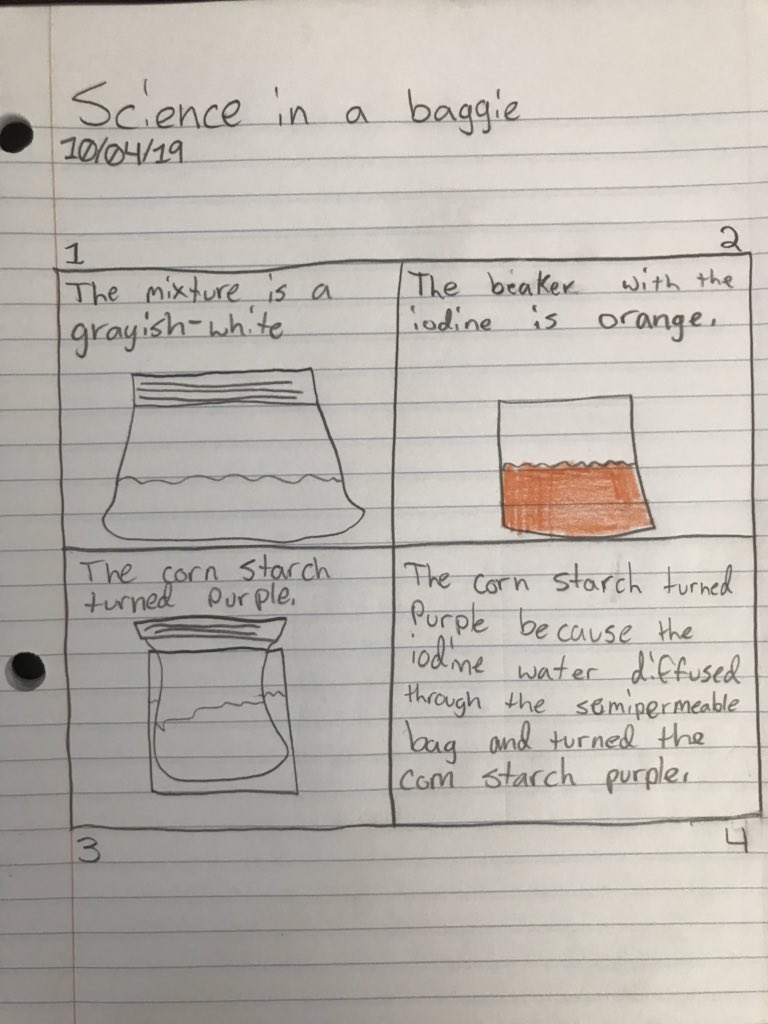 Science in a baggie
10/04/19
1
The mixture is a
grayish-white
2
The beaker with the
iodine is orange.
3
The corn starch
turned purple.
4
The corn starch turned
Purple because the
iodine water diffused
through the semipermeable
bag and turned the
corn starch purple.